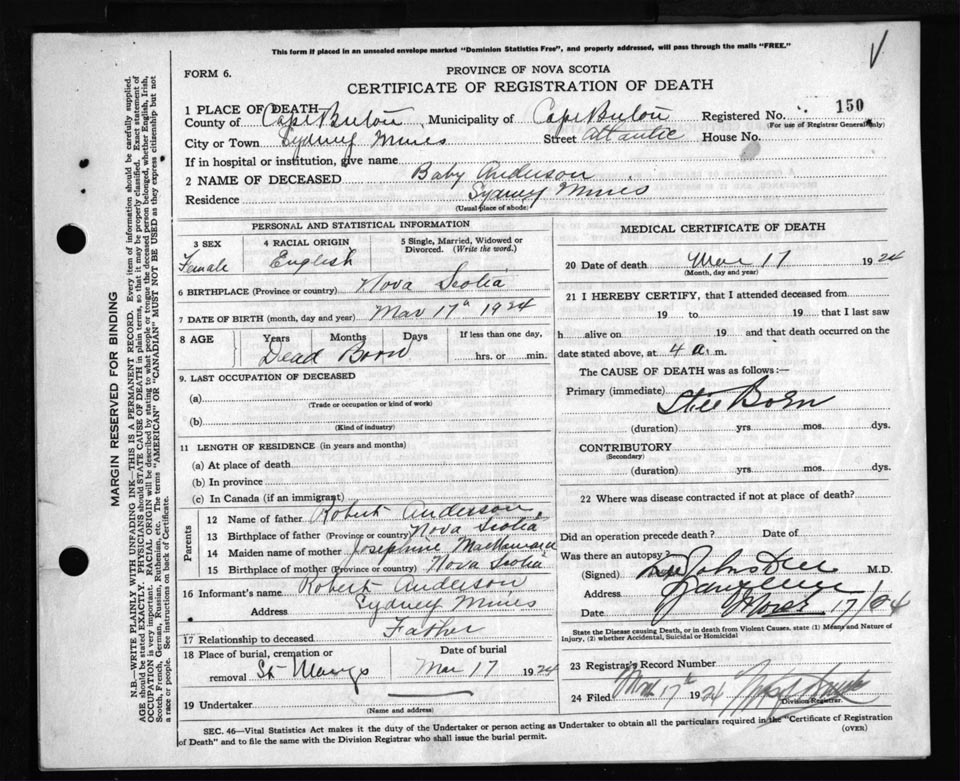 This form if placed in an unsealed envelope marked "Dominion Statistics Free", and properly addressed, will pass through the mails "FREE."
FORM 6.
PROVINCE OF NOVA SCOTIA
CERTIFICATE OF REGISTRATION OF DEATH
1 PLACE OF DEATH
County of Cape Breton Municipality of Cape Breton Registered No. 150
(For use of Registrar General only)
City or Town Sydney Mines Street Atlantic House No.
If in hospital or institution, give name
2 NAME OF DECEASED Baby Anderson
Residence Sydney Mines
(Usual place of abode)
PERSONAL AND STATISTICAL INFORMATION
3 SEX 4 RACIAL ORIGIN 5 Single, Married, Widowed or Divorced. (Write the word.)
Female English
6 BIRTHPLACE (Province or country) Nova Scotia
7 DATE OF BIRTH (month, day and year) Mar 17th 1924
8 AGE Years Months Days If less than one day,
Dead Born hrs. or min.
9. LAST OCCUPATION OF DECEASED
(a)
(Trade or occupation or kind of work)
(b)
(Kind of industry)
11 LENGTH OF RESIDENCE (in years and months)
(a) At place of death
(b) In province
(c) In Canada (if an immigrant)
Parents
12 Name of father Robert Anderson
13 Birthplace of father (Province or country) Nova Scotia
14 Maiden name of mother Josephine
15 Birthplace of mother (Province or country) Nova Scotia
16 Informant's name Robert Anderson
Address Sydney Mines
17 Relationship to deceased Father
18 Place of burial, cremation or removal St Marys
Date of burial
Mar 17 1924
19 Undertaker
(Name and address)
MEDICAL CERTIFICATE OF DEATH
20 Date of death Mar 17 1924
(Month, day and year)
21 I HEREBY CERTIFY, that I attended deceased from
19 to 19 that I last saw
h alive on 19 and that death occurred on
date stated above, at 4 a. m.
The CAUSE OF DEATH was as follows:—
Primary (immediate) Still Born
(duration) yrs. mos. dys.
CONTRIBUTORY
(Secondary)
(duration) yrs. mos. dys.
22 Where was disease contracted if not at place of death?
Did an operation precede death? Date of
Was there an autopsy?
(Signed) M.D.
Address
Date 17/24
State the Disease causing Death, or in death from Violent Causes, state (1) Means and Nature of Injury, (2) whether Accidental, Suicidal or Homicidal
23 Registrar's Record Number
24 Filed Mch 17th 1924
Division Registrar.
SEC. 46—Vital Statistics Act makes it the duty of the Undertaker or person acting as Undertaker to obtain all the particulars required in the "Certificate of Registration
of Death" and to file the same with the Division Registrar who shall issue the burial permit.
(OVER)
MARGIN RESERVED FOR BINDING
N.B.—WRITE PLAINLY WITH UNFADING INK—THIS IS A PERMANENT RECORD. Every item of information should be carefully supplied.
AGE should be stated EXACTLY. PHYSICIANS should STATE CAUSE OF DEATH in plain terms, so that it may be properly classified. Exact statement of
OCCUPATION is very important. RACIAL ORIGIN will be described by stating to what people or tongue the deceased person belonged, whether English, Irish,
Scotch, French, German, Russian, Ruthenian, etc. The terms "AMERICAN" or "CANADIAN" MUST NOT BE USED as they express citizenship but not
a race or people. See instructions on back of Certificate.